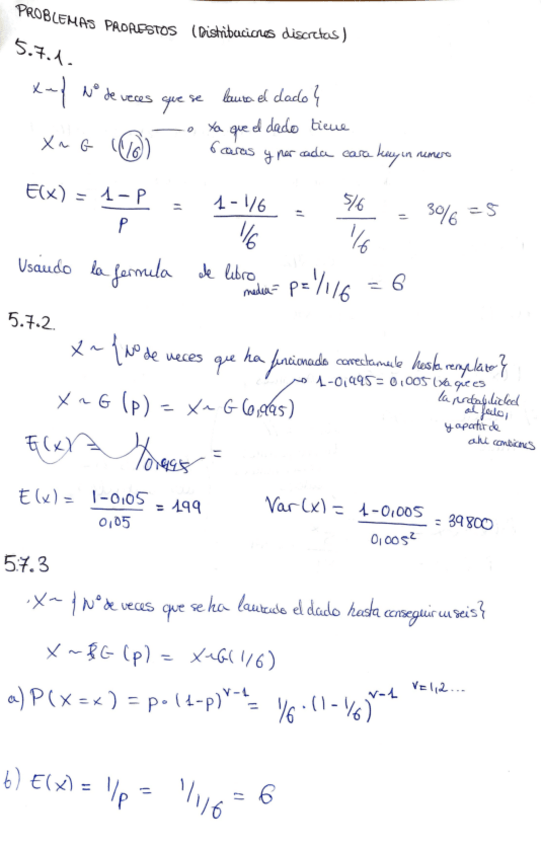 PROBLEMAS PROPUESTOS (Distribuciones discretas)
5.7.1.
X~{ Nº de veces que se lanza el dado}
X ~ G (1/6) ya que el dado tiene
6 caras y por cada cara hay un numero
E(x) = 1-P/P = 1-1/6 / 1/6 = 5/6 / 1/6 = 30/6 = 5
Usando la formula de libro media = p = 1/1/6 = 6
5.7.2.
X ~ {Nº de veces que ha funcionado correctamente hasta remplazo}
1-0,995 = 0,005 (ya que es
la probabilidad
X ~ G (p) = X ~ G(0,995)
y a partir de
ahi
E(x) = 1/0,995 =
E(x) = 1-0,05/0,05 = 199 Var(x) = 1-0,005/0,005² = 39800
5.7.3
X ~ {Nº de veces que se ha lanzado el dado hasta conseguir un seis}
X ~ G (p) = X~G(1/6)
a) P(X = x) = p · (1-p)^v-1 = 1/6 · (1-1/6)^v-1 v=1,2...
b) E(x) = 1/p = 1/1/6 = 6